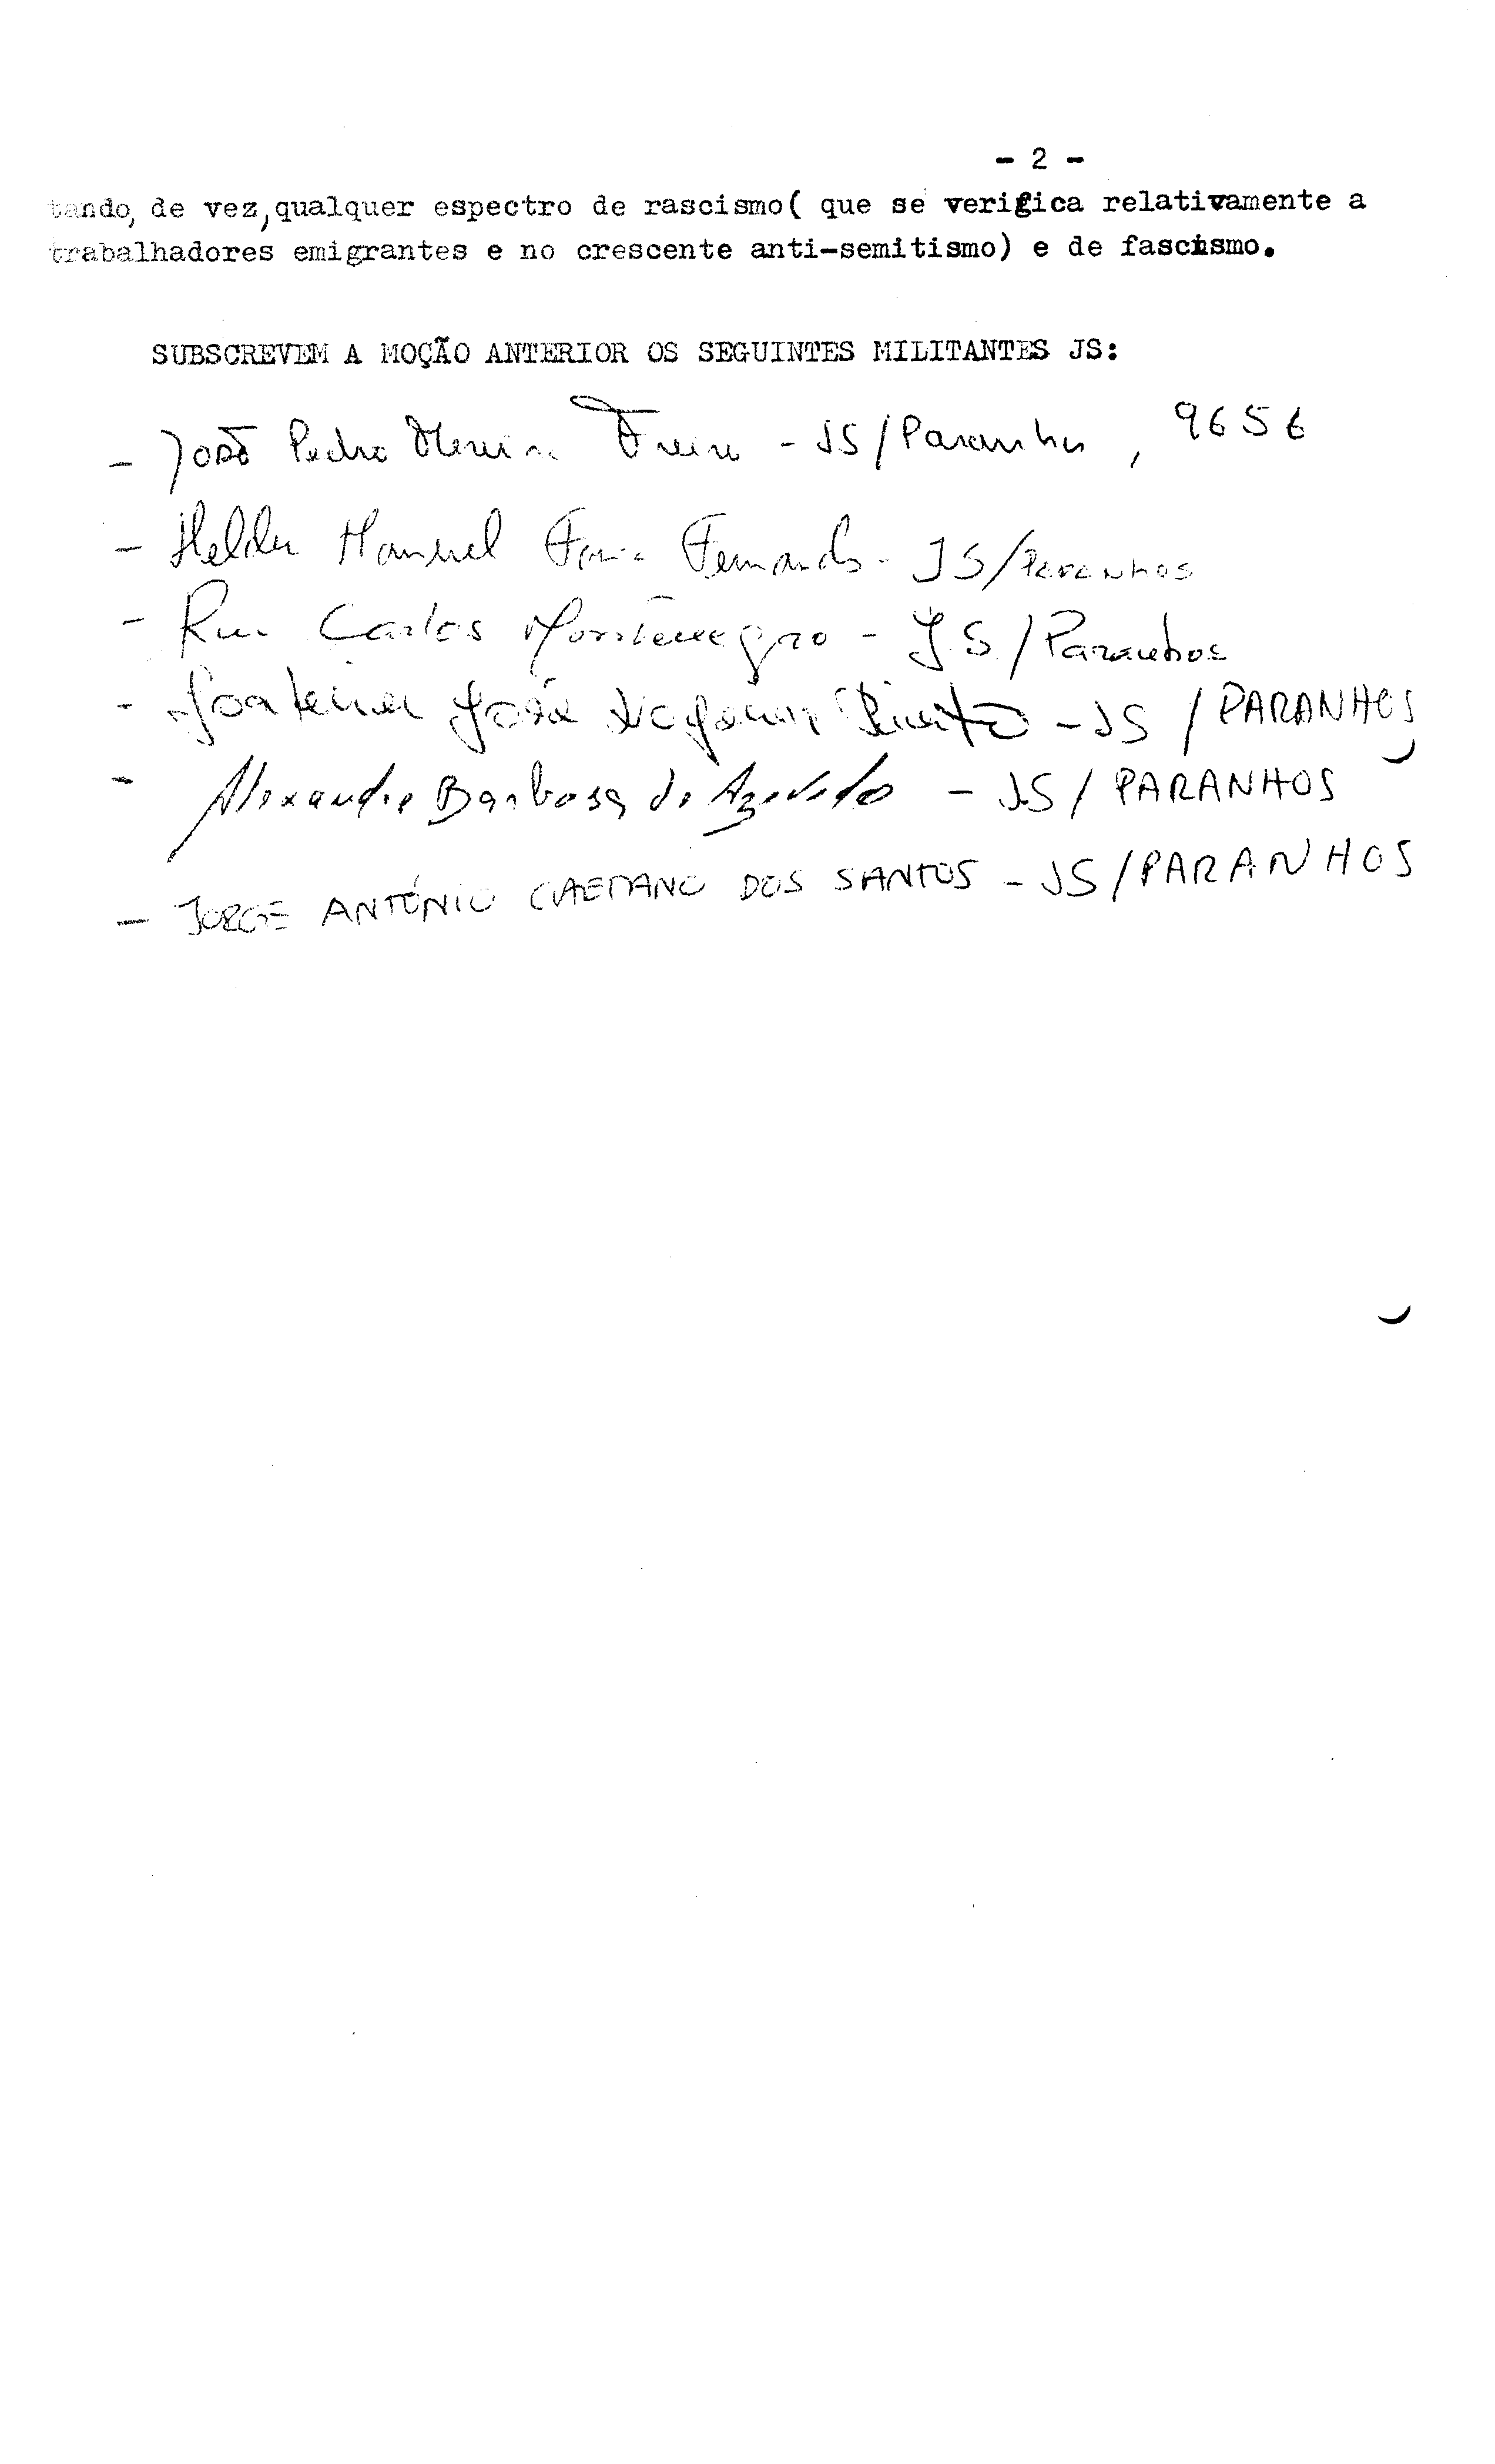 - 2 -
tando, de vez, qualquer espectro de rascismo( que se verifica relativamente a
trabalhadores emigrantes e no crescente anti-semitismo) e de fascismo.
SUBSCREVEM A MOÇÃO ANTERIOR OS SEGUINTES MILITANTES JS:
- João Pedro Freire - JS/Paranhos, 9656
- Helder Manuel Faria Fernandes - JS/Paranhos
- Rui Carlos Montenegro - JS/Paranhos
- José Pinto - JS / PARANHOS
- Alexandre Barbosa de Azevedo - JS / PARANHOS
- JORGE ANTÓNIO CAETANO DOS SANTOS - JS/PARANHOS